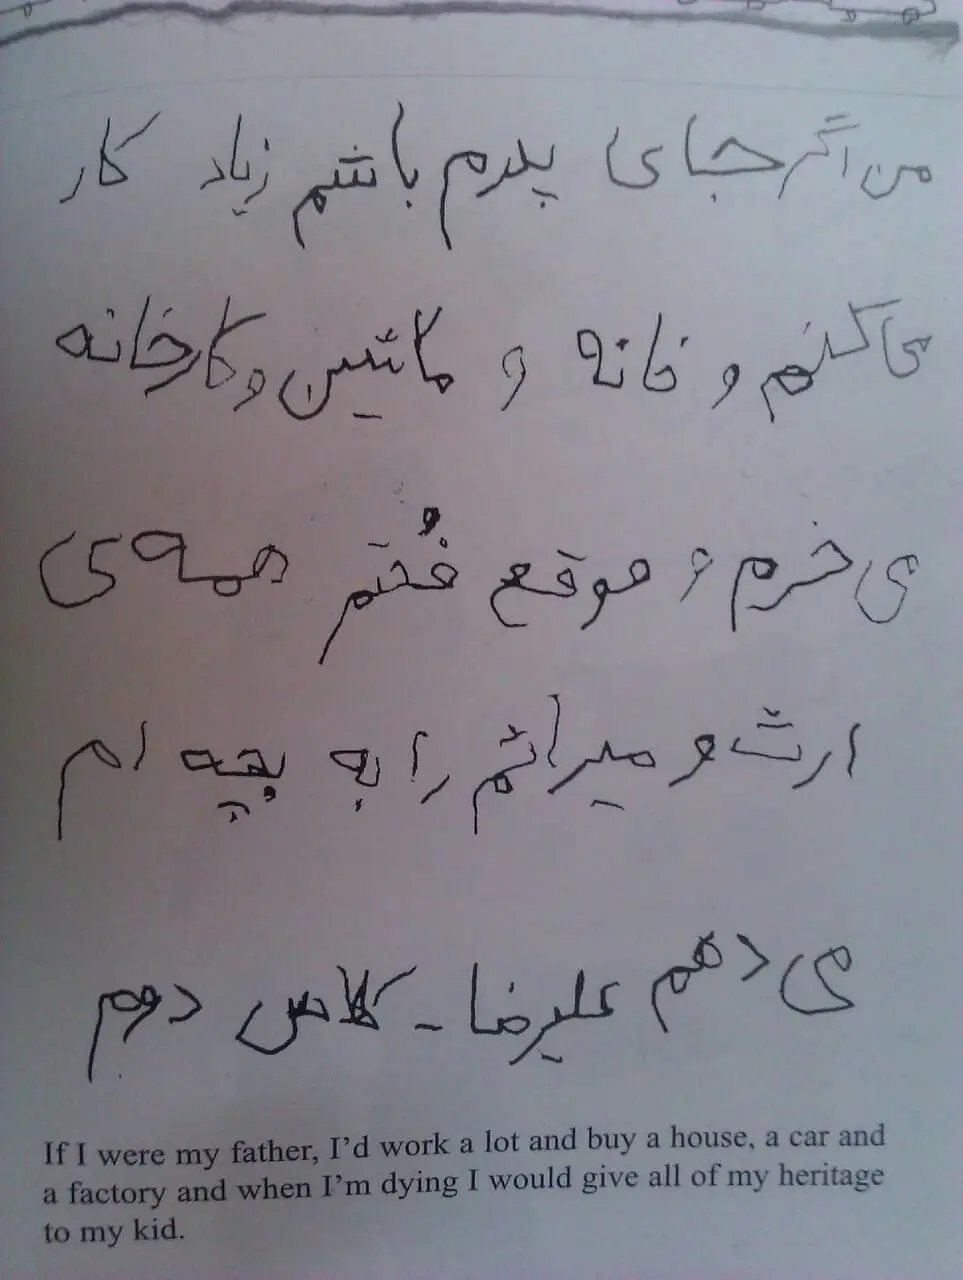 من اگر جای پدرم باشم زیاد کار
می کنم و خانه و ماشین و کارخانه
می خرم و موقع فُختم همه ی
ارث و میراثم را به بچه ام
می دهم علیرضا - کلاس دوم
If I were my father, I'd work a lot and buy a house, a car and
a factory and when I'm dying I would give all of my heritage
to my kid.